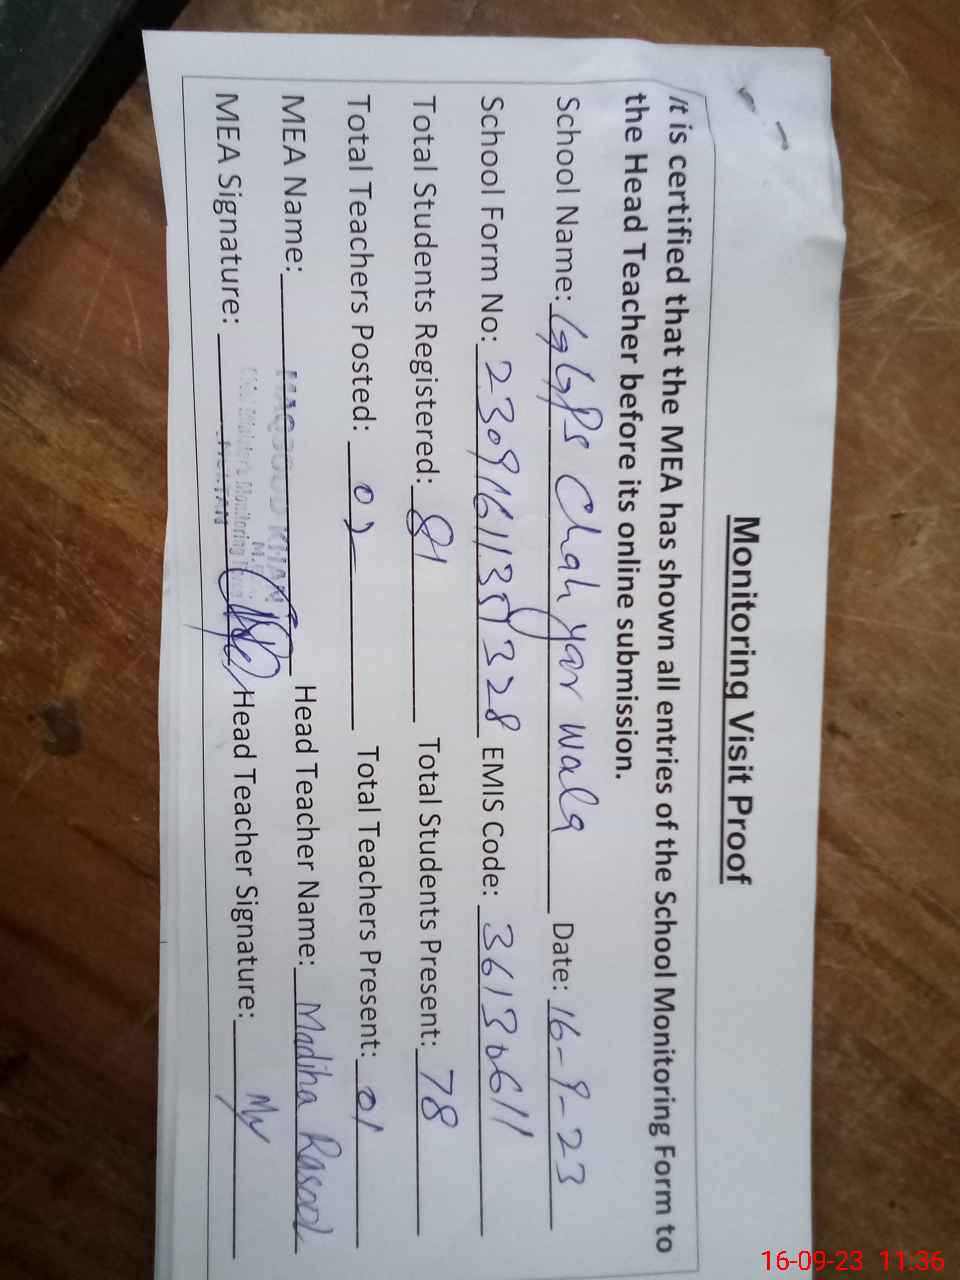 Monitoring Visit Proof
It is certified that the MEA has shown all entries of the School Monitoring Form to
the Head Teacher before its online submission.
School Name: GGPS Chah yar wala Date: 16-9-23
School Form No: EMIS Code: 36130611
Total Students Registered: 81 Total Students Present: 78
Total Teachers Posted: 02 Total Teachers Present: 01
MEA Name: MAQSOOD KHAN Head Teacher Name: Madiha Rasool
MEA Signature: Head Teacher Signature:
Monitoring
MULTAN
16-09-23 11:36